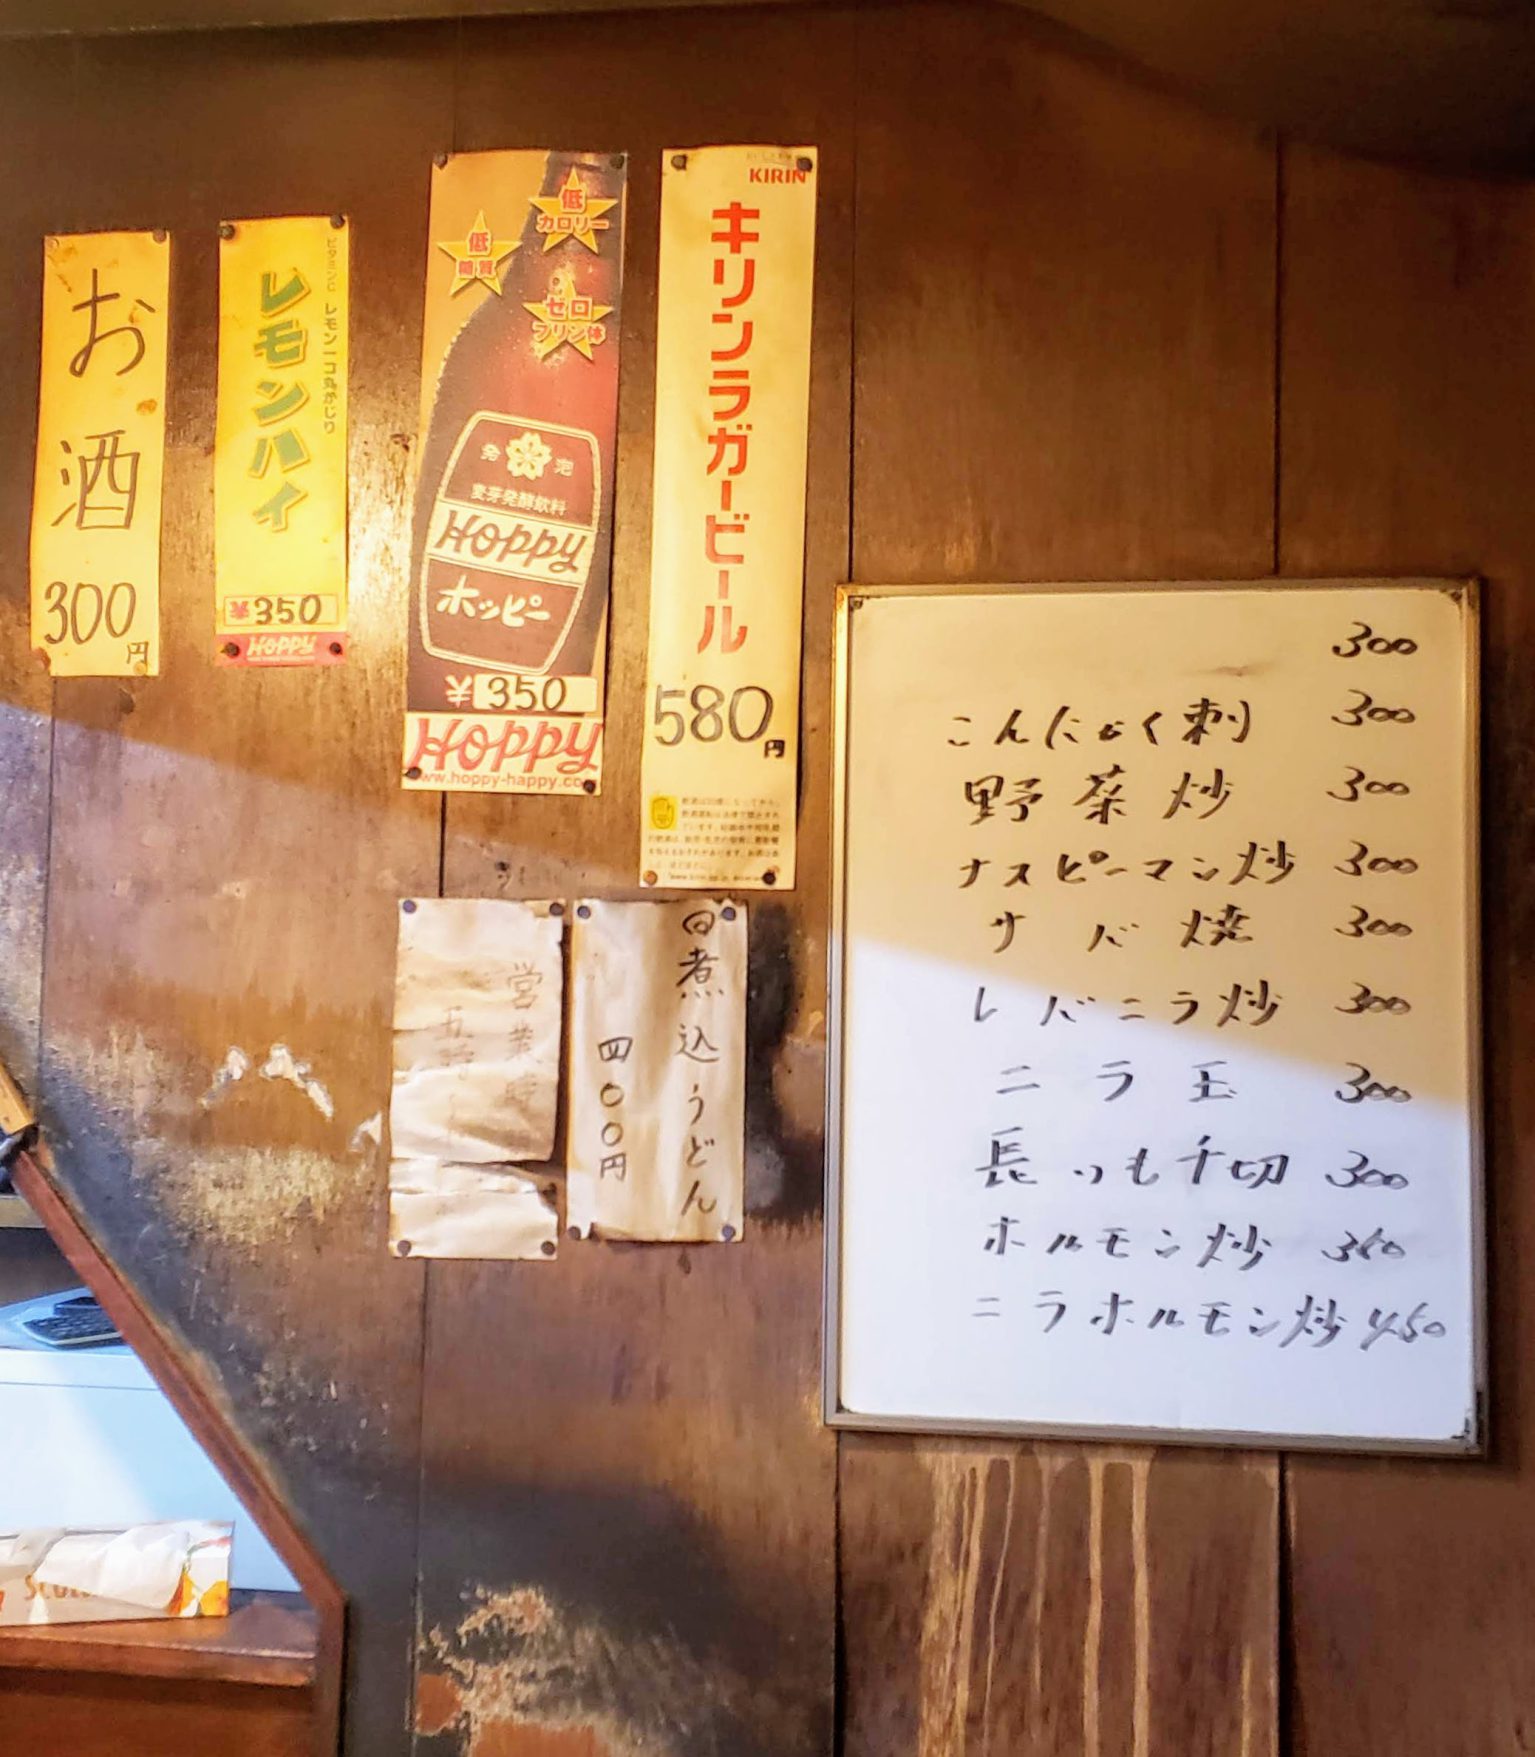 お酒
300円
ビタミンC レモン一コ丸かじり
レモンハイ
¥350
HOPPY
低カロリー
低糖質
ゼロプリン体
発泡
麦芽発酵飲料
Hoppy
ホッピー
¥350
HOPPY
www.hoppy-happy.co
KIRIN
キリンラガービール
580円
営業時
五時
煮込うどん
四〇〇円
300
こんにゃく刺 300
野菜炒 300
ナスピーマン炒 300
サバ焼 300
レバニラ炒 300
ニラ玉 300
長いも千切 300
ホルモン炒 350
ニラホルモン炒 450